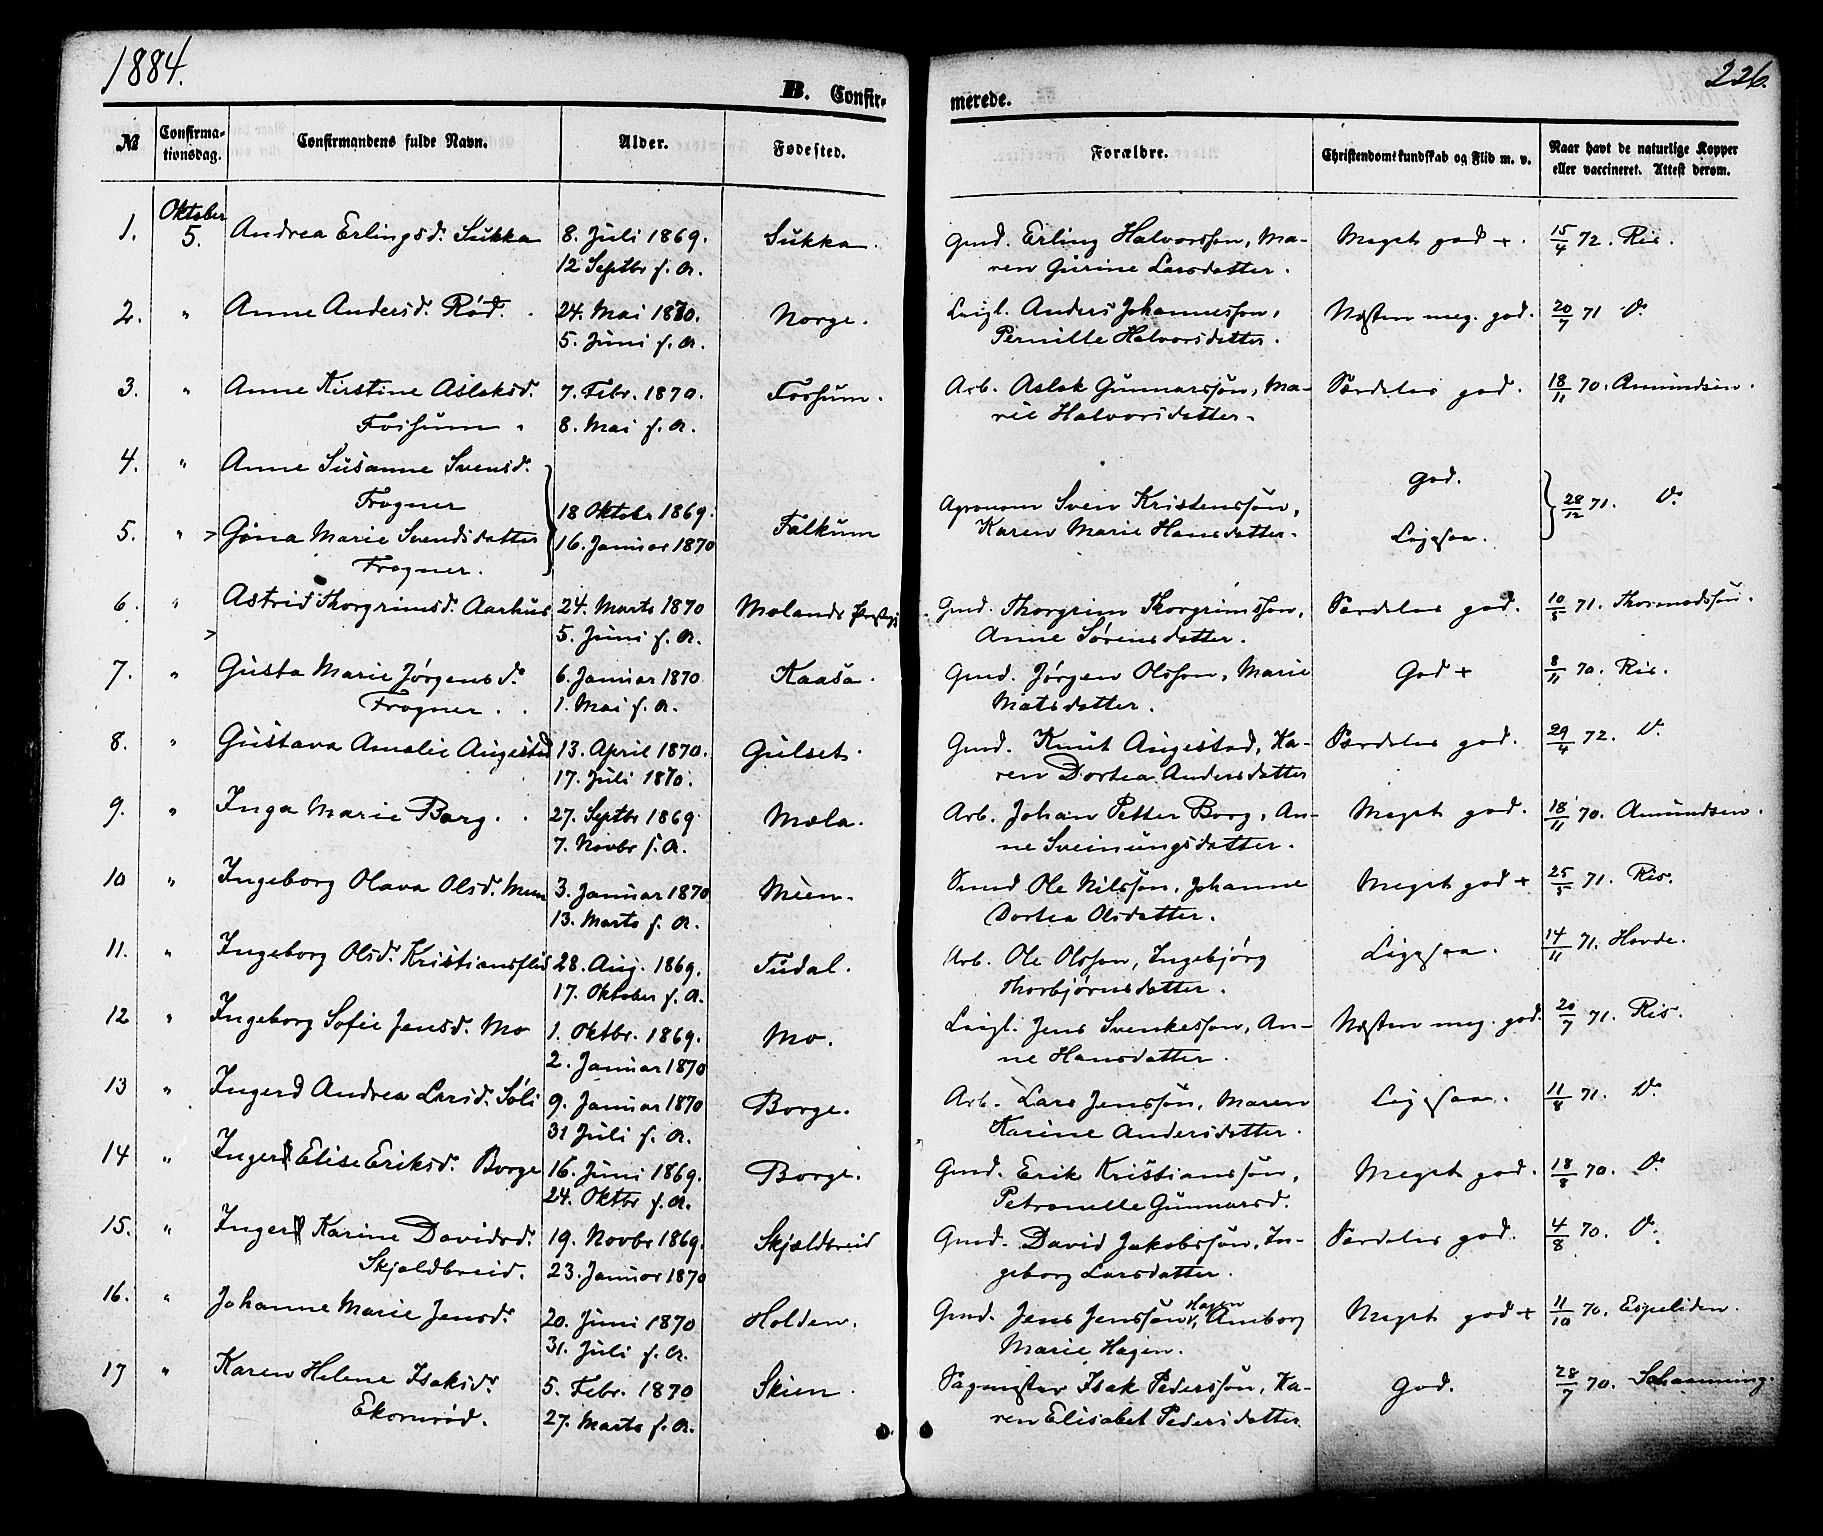 1884.
226.
B. Confir-
merede.
№ Confirma- tionsdag. Confirmandens fulde Navn. Alder. Fødested. Forældre. Christendomskundskab og Flid m. v. Naar havt de naturlige Kopper eller vaccineret. Attest derom.
1. Oktober 5. Andrea Erlingsd. Sukka 8. Juli 1869. Sukka. Gmd. Erling Halvorssøn, Ma- Meget god +. 15/4 72. Ris.
12 Septbr s. A. ren Gurine Larsdatter.
2. " Anne Andersd. Rød. 24. Mai 1870. Norge. Leigl. Anders Johannessøn, Næsten meg. god. 20/7 71 D.
5. Juni s. A. Pernille Halvorsdatter.
3. " Anne Kirstine Aslaksd. 7. Febr. 1870. Fossum. Arb. Aslak Gunnarssøn, Ma- Særdeles god. 18/11 70. Amundsen.
Fossum. 8. Mai s. A. rie Halvorsdatter.
4. " Anne Susanne Svensd. god.
Frogner 18 Oktobr 1869. Falkum Agronom Sven Kristenssøn, 28/12 71. D.
5. " Gina Marie Svendsdatter 16. Januar 1870 Karen Marie Hansdatter. Ligesaa.
Frogner.
6. " Astrid Thorgrimsd. Aarhus 24. Marts 1870 Molands Gmd. Thorgrim Thorgrimssøn, Særdeles god. 10/5 71. Thormodssøn.
5. Juni s. A. Anne Sørensdatter.
7. " Gusta Marie Jørgensd. 6. Januar 1870 Kaasa. Gmd. Jørgen Olssøn, Marie God + 8/11 70. Ris.
Frogner. 1. Mai s. A. Matsdatter.
8. " Gustava Amalie Augestad 13. April 1870. Gulset. Gmd. Knut Augestad, Ka- Særdeles god. 29/4 72. D.
17. Juli 1870. ren Dortea Andersdatter
9. " Inga Marie Borg. 27. Septbr 1869 Mæla. Arb. Johan Petter Borg, An- Meget god. 18/11 70. Amundsen.
7. Novbr s. A. ne Sveinungsdatter.
10 " Ingeborg Olava Olsd. Meen 3. Januar 1870 Meen. Smed Ole Nilssøn, Johanne Meget god + 25/5 71. Ris.
13. Marts s. A. Dortea Olsdatter.
11. " Ingeborg Olsd. Kristianslid 28. Aug. 1869. Tudal. Arb. Ole Olssøn, Ingebjørg Ligesaa. 14/11 71. Hovde.
17. Oktober s. A. Thorbjørnsdatter.
12 " Ingeborg Sofie Jensd. Mo 1. Oktbr. 1869. Mo. Leigl. Jens Svenkessøn, An- Næsten meg. god. 20/7 71. Ris.
2. Januar 1870 ne Hansdatter.
13 " Ingerd Andrea Larsd. Søli 9. Januar 1870 Borge. Arb. Lars Jenssøn, Maren Ligesaa. 11/8 71. D.
31 Juli s. A. Karine Andersdatter.
14 " Inger Elise Eriksd. Borge 16. Juni 1869. Borge. Gmd. Erik Kristianssøn, Meget god. 18/8 70. D.
24. Oktbr s. A. Petronelle Gunnarsd.
15. " Inger Karine Davidsd. 19. Novbr 1869. Skjældbreid Gmd. David Jakobssøn, In- Særdeles god. 4/8 70. D.
Skjældbreid. 23. Januar 1870 geborg Larsdatter.
16. " Johanne Marie Jensd. 20. Juni 1870 Holden. Gmd. Jens Jenssøn Hagen, Amborg Meget god + 11/10 70. Espeliden.
31. Juli s. A. Marie Hagen.
17 " Karen Helene Isaksd. 5. Febr. 1870 Skien. Sagmester Isak Pederssøn, Ka- God. 28/7 70. Schanning.
Ekornrød. 27. Marts s. A. ren Elisabet Pedersdatter